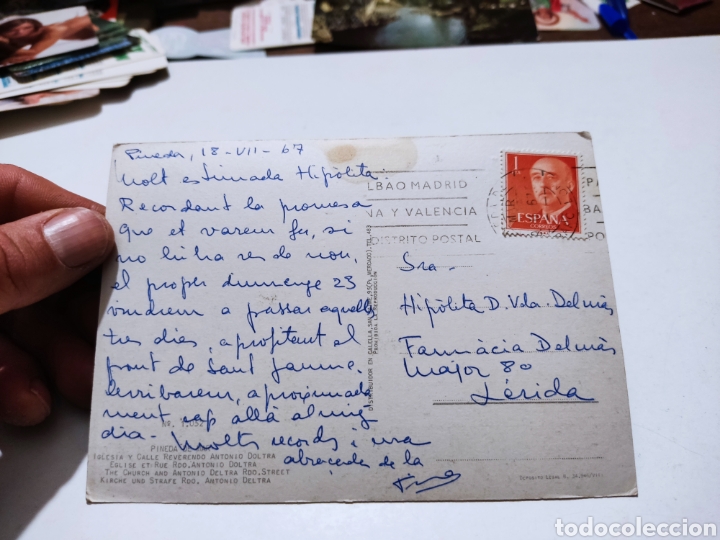 Pineda, 18-VII-67
Molt estimada Hipòlita:
Recordant la promesa
que et varem fer, si
no hi ha res de nou,
el proper diumenge 23
vindrem a passar aquells
tres dies, aprofitant el
pont de Sant Jaume.
Arribarem, aproximada
ment cap allà al mig
dia. Molts records i una
abraçada de la
Nº. 1.032
PINEDA
IGLESIA Y CALLE REVERENDO ANTONIO DOLTRA
EGLISE ET RUE RDO. ANTONIO DOLTRA
THE CHURCH AND ANTONIO DELTRA RDO. STREET
KIRCHE UND STRAFE RDO. ANTONIO DELTRA
LBAO MADRID
NA Y VALENCIA
DISTRITO POSTAL
1
ESPAÑA
CORREOS
PI
BA
PO
Sra.
Hipòlita D. Vda. Delmàs
Farmàcia Delmàs
Major 80
Lérida
todocoleccion
todocoleccion.net